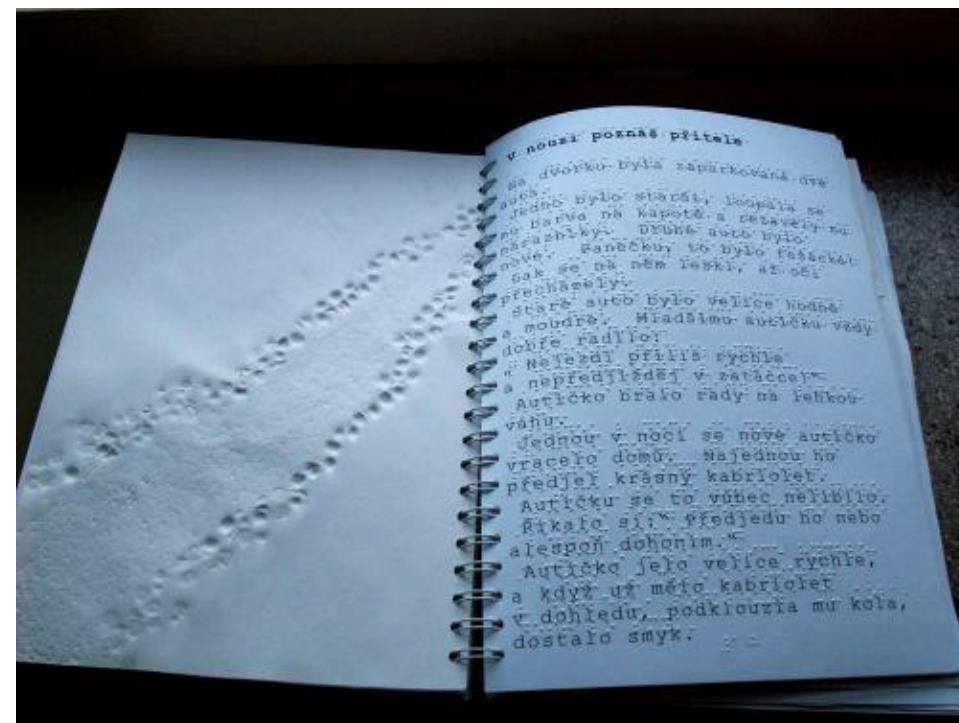 V nouzi poznáš přítele
Na dvorku byla zaparkovaná dvě
auta.
Jedno bylo starší, loupala se
mu barva na kapotě a rezavěly mu
nárazníky. Druhé auto bylo
nové. Panečku, to bylo fešácké!
Lak se na něm leskl, až oči
přecházely.
Staré auto bylo velice hodné
a moudré. Mladšímu autíčku vždy
dobře radilo:
"Nejezdi příliš rychle
a nepředjížděj v zatáčce!"
Autíčko bralo rady na lehkou
váhu.
Jednou v noci se nové autíčko
vracelo domů. Najednou ho
předjel krásný kabriolet.
Autíčku se to vůbec nelíbilo.
Říkalo si:" Předjedu ho nebo
alespoň dohoním."
Autíčko jelo velice rychle,
a když už mělo kabriolet
v dohledu, podklouzla mu kola,
dostalo smyk.